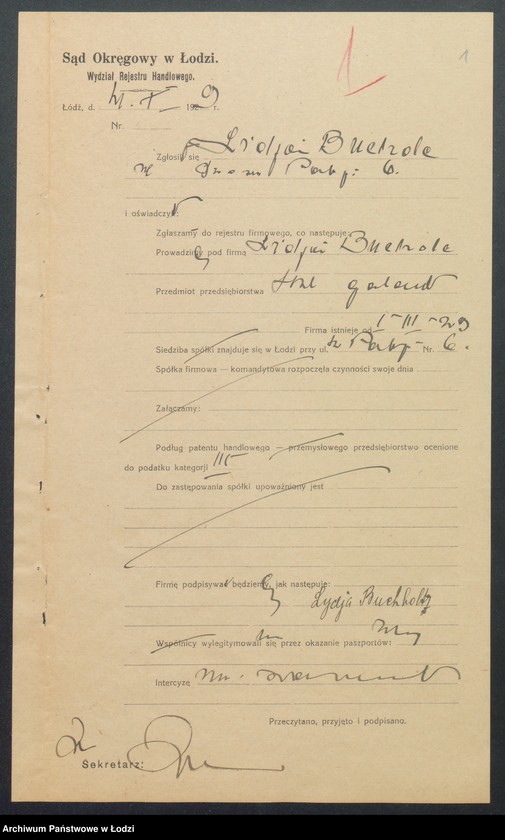 1
1
Sąd Okręgowy w Łodzi.
Wydział Rejestru Handlowego.
Łódź, d. 1929 r.
Nr.
Zgłosił się Lidja
6.
i oświadczył:
Zgłaszamy do rejestru firmowego, co następuje:
Prowadzimy pod firmą Lidja
Przedmiot przedsiębiorstwa galant
Firma istnieje od I-III-29
Siedziba spółki znajduje się w Łodzi przy ul. Nr. 6.
Spółka firmowa — komandytowa rozpoczęła czynności swoje dnia
Załączamy:
Podług patentu handlowego — przemysłowego przedsiębiorstwo ocenione
do podatku kategorji III
Do zastępowania spółki upoważniony jest
Firmę podpisywać będziemy, jak następuje:
Lydja Buchholtz
Wspólnicy wylegitymowali się przez okazanie paszportów:
Intercyzę
Przeczytano, przyjęto i podpisano.
Sekretarz:
Archiwum Państwowe w Łodzi